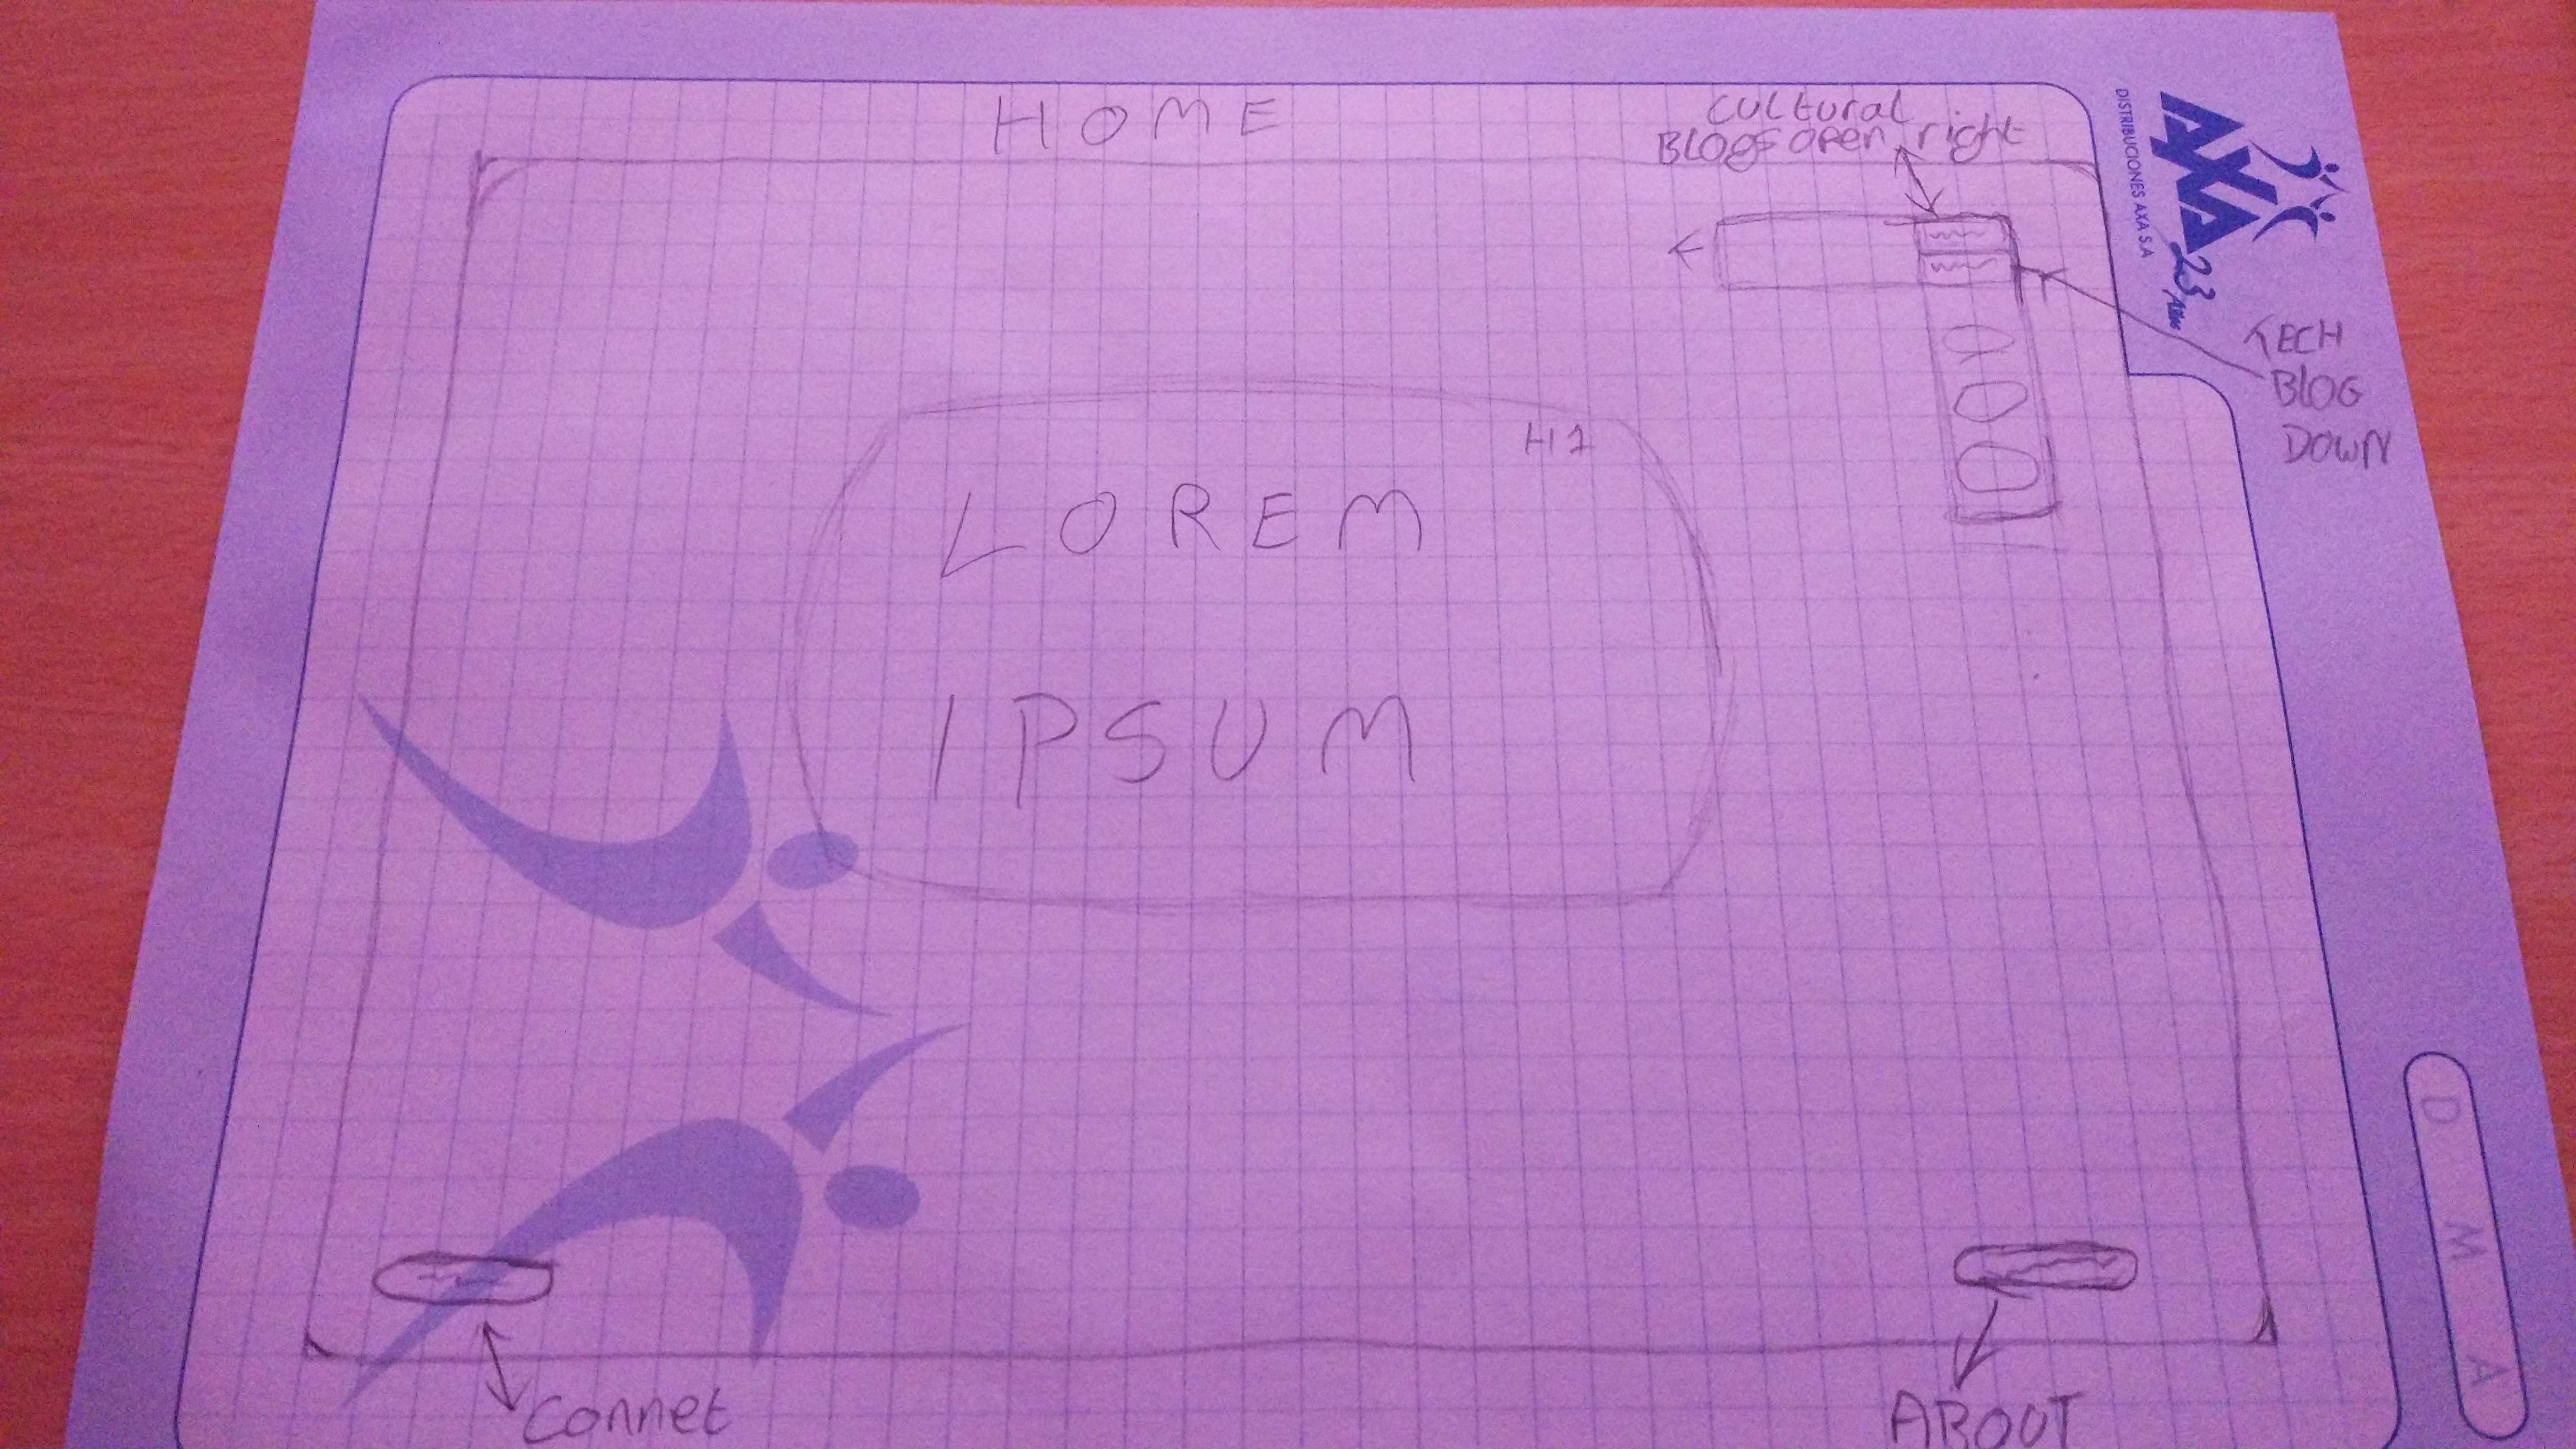 HOME
cultural
BLOgs open right
AXA
DISTRIBUCIONES AXA S.A
23 Años
TECH
BLOG
DOWN
H1
LOREM
IPSUM
Connet
ABOUT
D M A